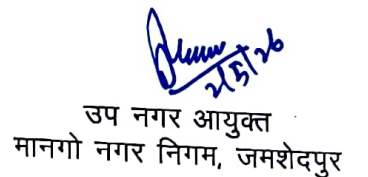 2/5/26
उप नगर आयुक्त
मानगो नगर निगम, जमशेदपुर